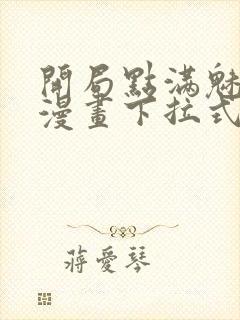 開局點滿魅
漫畫下拉式
蔣愛琴